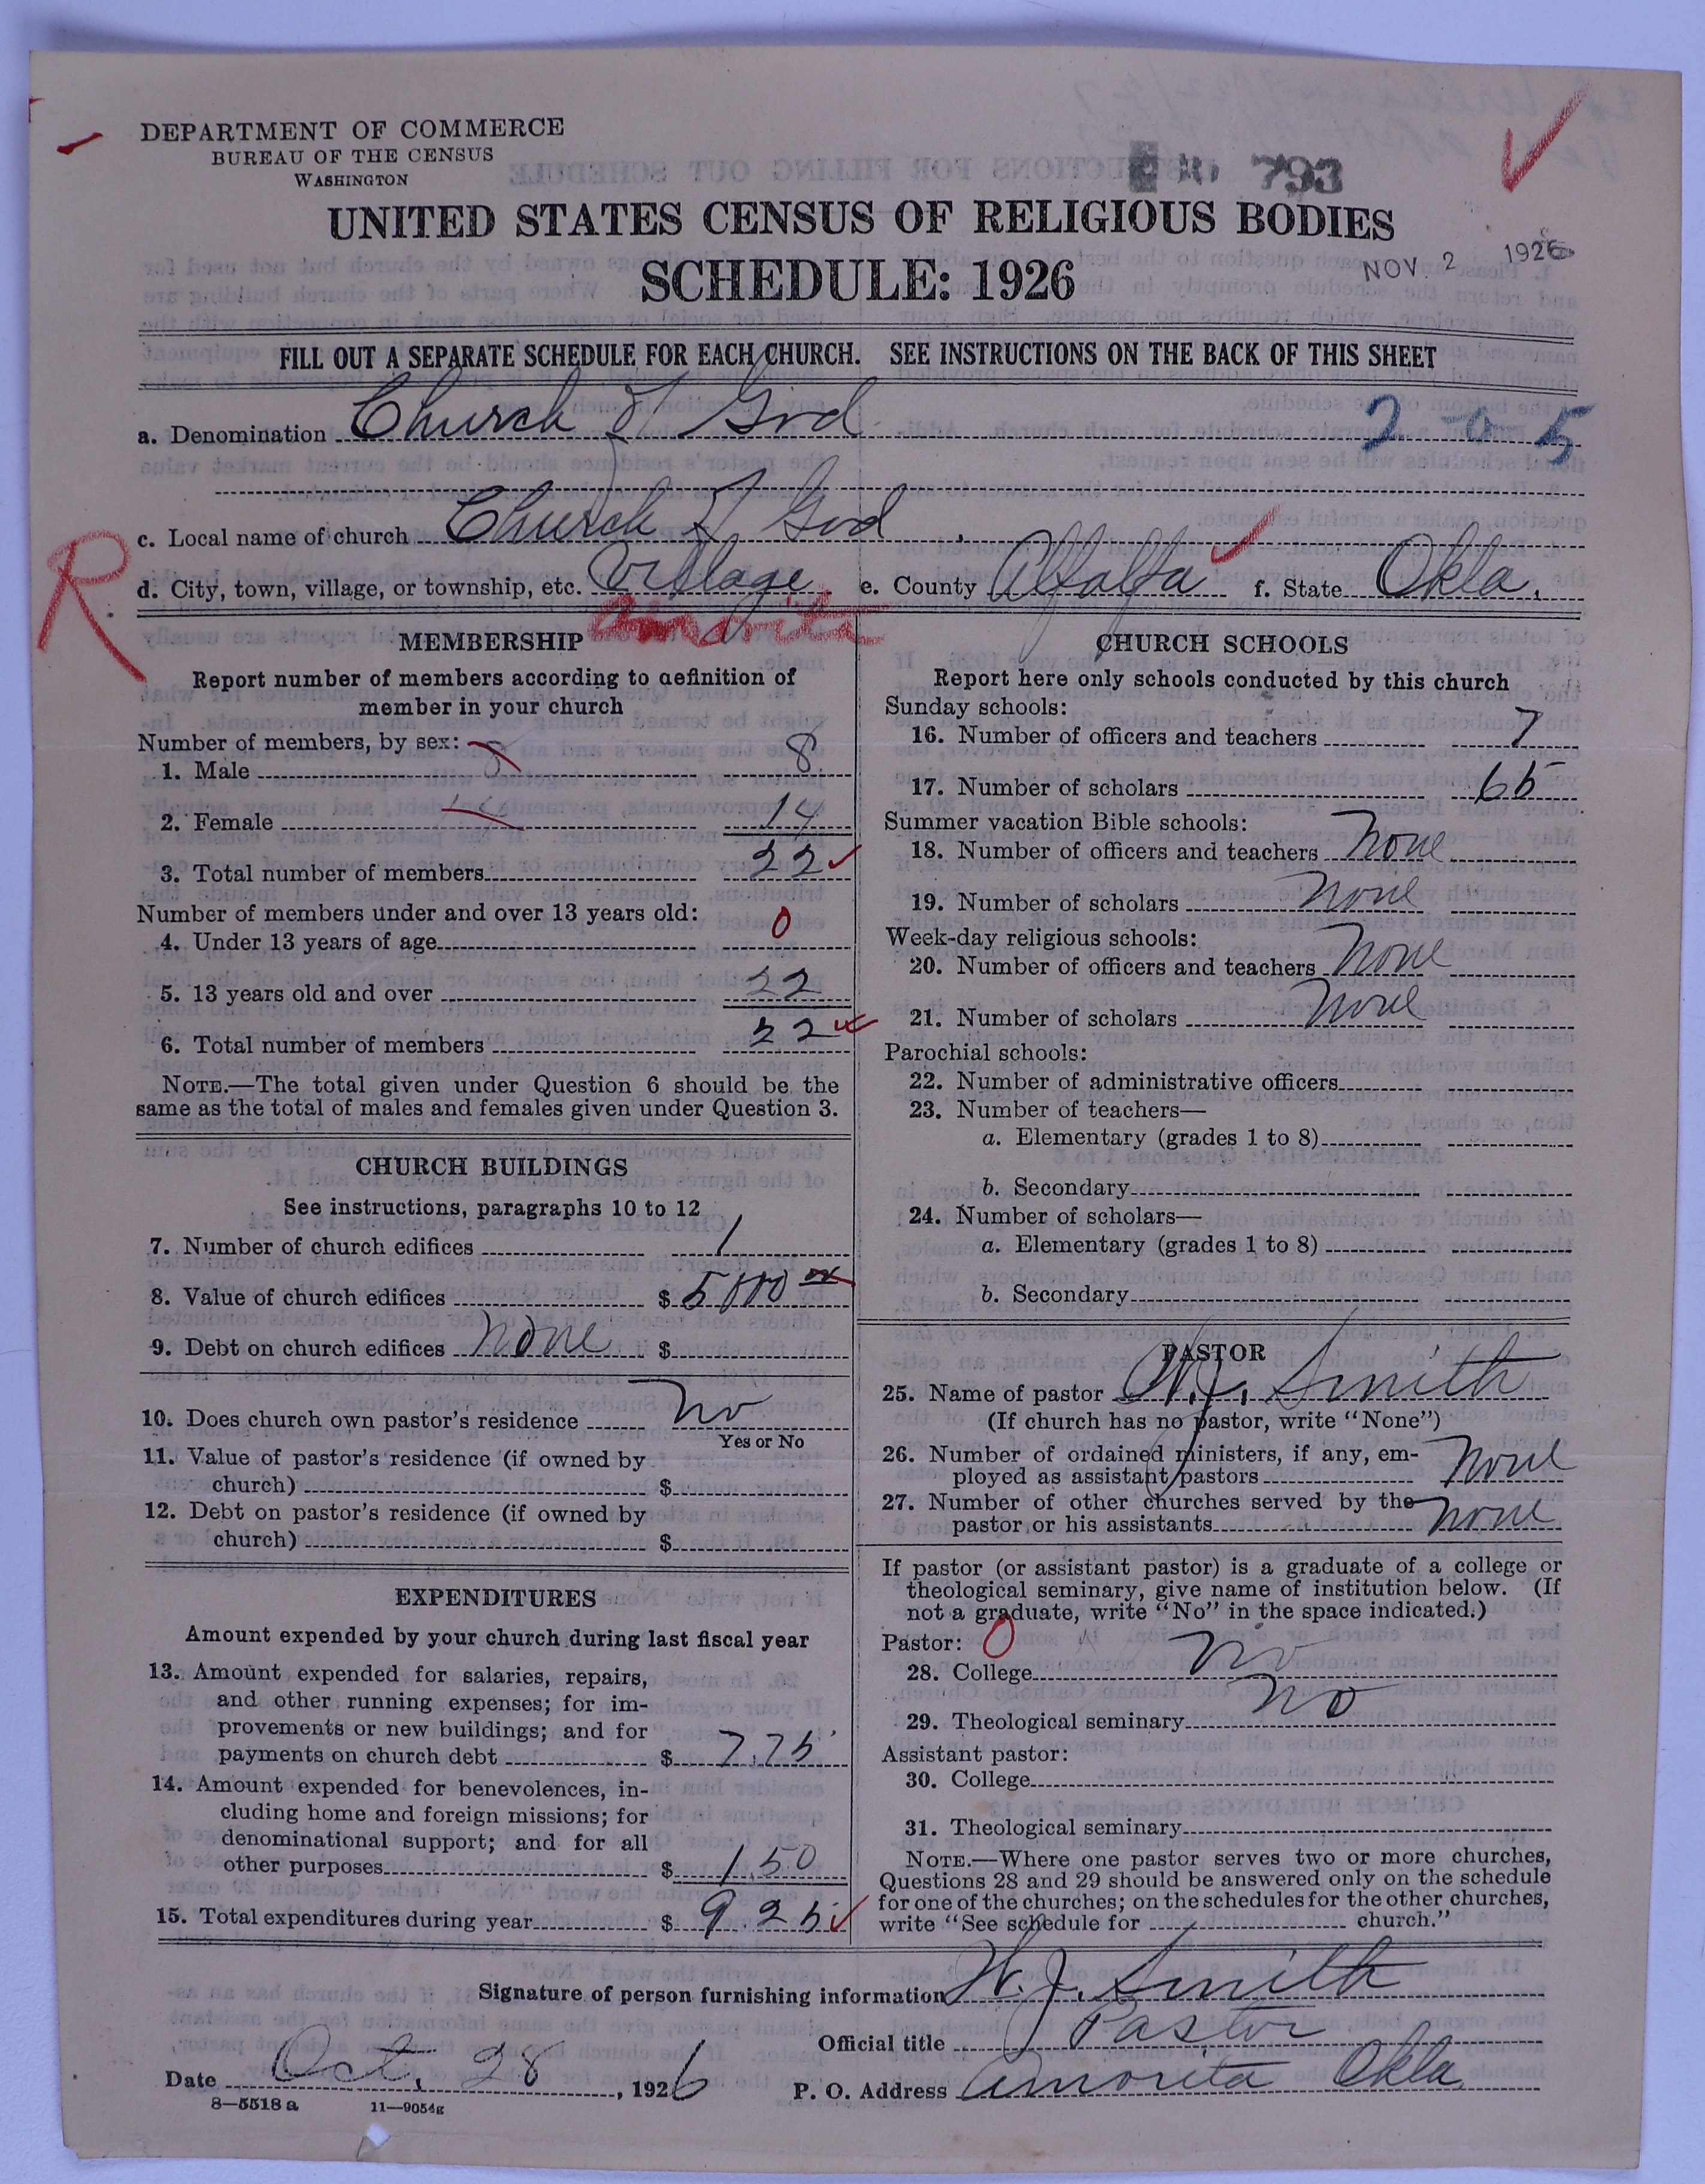 DEPARTMENT OF COMMERCE
BUREAU OF THE CENSUS
WASHINGTON
793
UNITED STATES CENSUS OF RELIGIOUS BODIES
SCHEDULE: 1926
NOV. 2 1926
FILL OUT A SEPARATE SCHEDULE FOR EACH CHURCH. SEE INSTRUCTIONS ON THE BACK OF THIS SHEET
a. Denomination Church of God
2-0 5
c. Local name of church Church of God
R
d. City, town, village, or township, etc. Village e. County Alfalfa f. State Okla.
Amorita
MEMBERSHIP
Report number of members according to definition of
member in your church
Number of members, by sex:
1. Male 8
2. Female 14
3. Total number of members 22
Number of members under and over 13 years old:
4. Under 13 years of age 0
5. 13 years old and over 22
6. Total number of members 22
NOTE.—The total given under Question 6 should be the
same as the total of males and females given under Question 3.
CHURCH BUILDINGS
See instructions, paragraphs 10 to 12
7. Number of church edifices 1
8. Value of church edifices $ 5000 00
9. Debt on church edifices none $
10. Does church own pastor's residence no
Yes or No
11. Value of pastor's residence (if owned by
church) $
12. Debt on pastor's residence (if owned by
church) $
EXPENDITURES
Amount expended by your church during last fiscal year
13. Amount expended for salaries, repairs,
and other running expenses; for im-
provements or new buildings; and for
payments on church debt $ 7.75
14. Amount expended for benevolences, in-
cluding home and foreign missions; for
denominational support; and for all
other purposes $ 1.50
15. Total expenditures during year $ 9.25
CHURCH SCHOOLS
Report here only schools conducted by this church
Sunday schools:
16. Number of officers and teachers 7
17. Number of scholars 65
Summer vacation Bible schools:
18. Number of officers and teachers None
19. Number of scholars None
Week-day religious schools:
20. Number of officers and teachers None
21. Number of scholars None
Parochial schools:
22. Number of administrative officers
23. Number of teachers—
a. Elementary (grades 1 to 8)
b. Secondary
24. Number of scholars—
a. Elementary (grades 1 to 8)
b. Secondary
PASTOR
25. Name of pastor W. J. Smith
(If church has no pastor, write "None")
26. Number of ordained ministers, if any, em-
ployed as assistant pastors None
27. Number of other churches served by the
pastor or his assistants None
If pastor (or assistant pastor) is a graduate of a college or
theological seminary, give name of institution below. (If
not a graduate, write "No" in the space indicated.)
Pastor: 0
28. College No
29. Theological seminary No
Assistant pastor:
30. College
31. Theological seminary
NOTE.—Where one pastor serves two or more churches,
Questions 28 and 29 should be answered only on the schedule
for one of the churches; on the schedules for the other churches,
write "See schedule for church."
Signature of person furnishing information W. J. Smith
Official title Pastor
Date Oct. 28, 1926 P. O. Address Amorita Okla.
8—5518 a 11—9054g